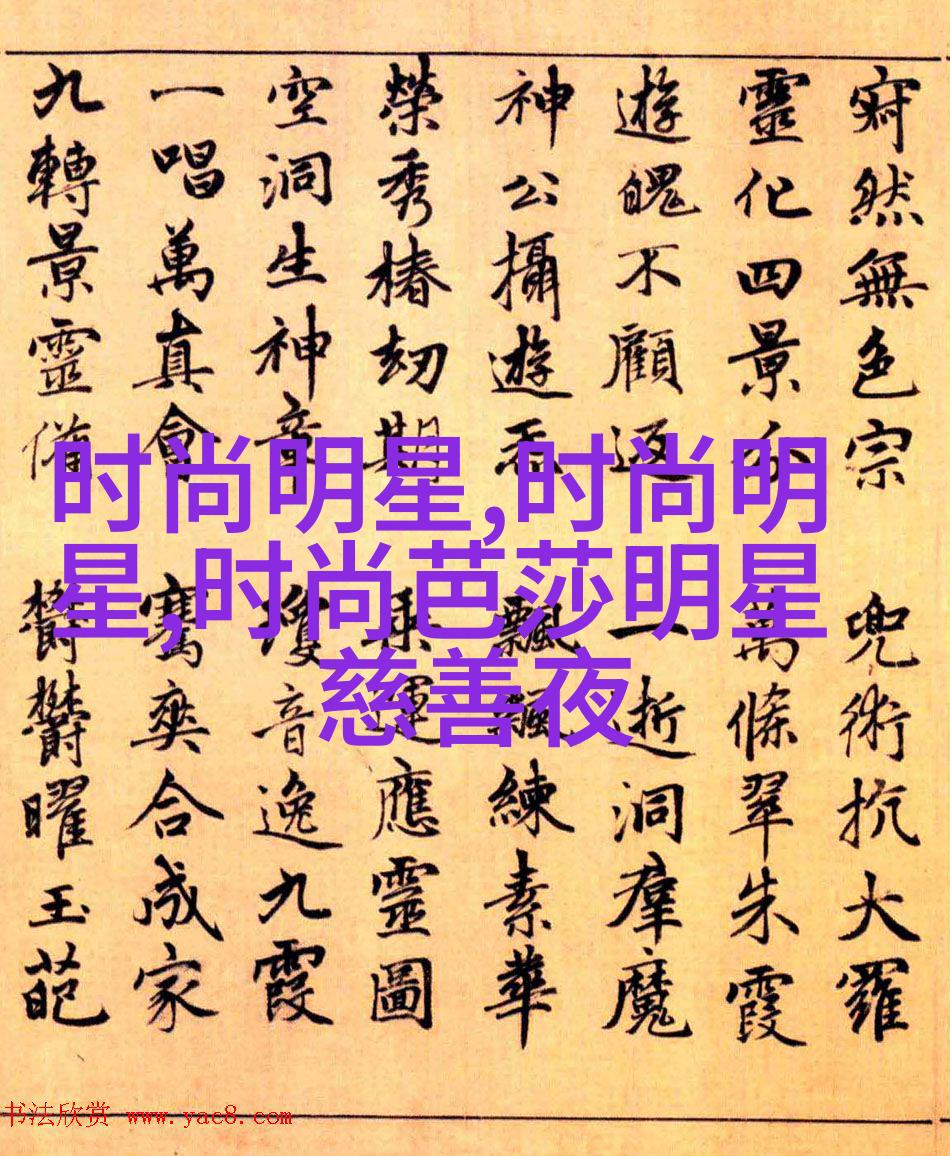 寂然無色宗 兜術抗大羅
靈化四景分 萬條翠朱霞
遊魄不顧返 一逝洞羣魔
神公攝遊炁 飄飄練素華
榮秀椿劫期 運應靈圖
空洞生神章 瓊音逸九霞
一唱萬真會 騫爽合成家
九轉景靈備 鬱鬱曜玉葩
时尚明星,时尚明
星,时尚芭莎明星
慈善夜
书法欣赏 www.yac8.com